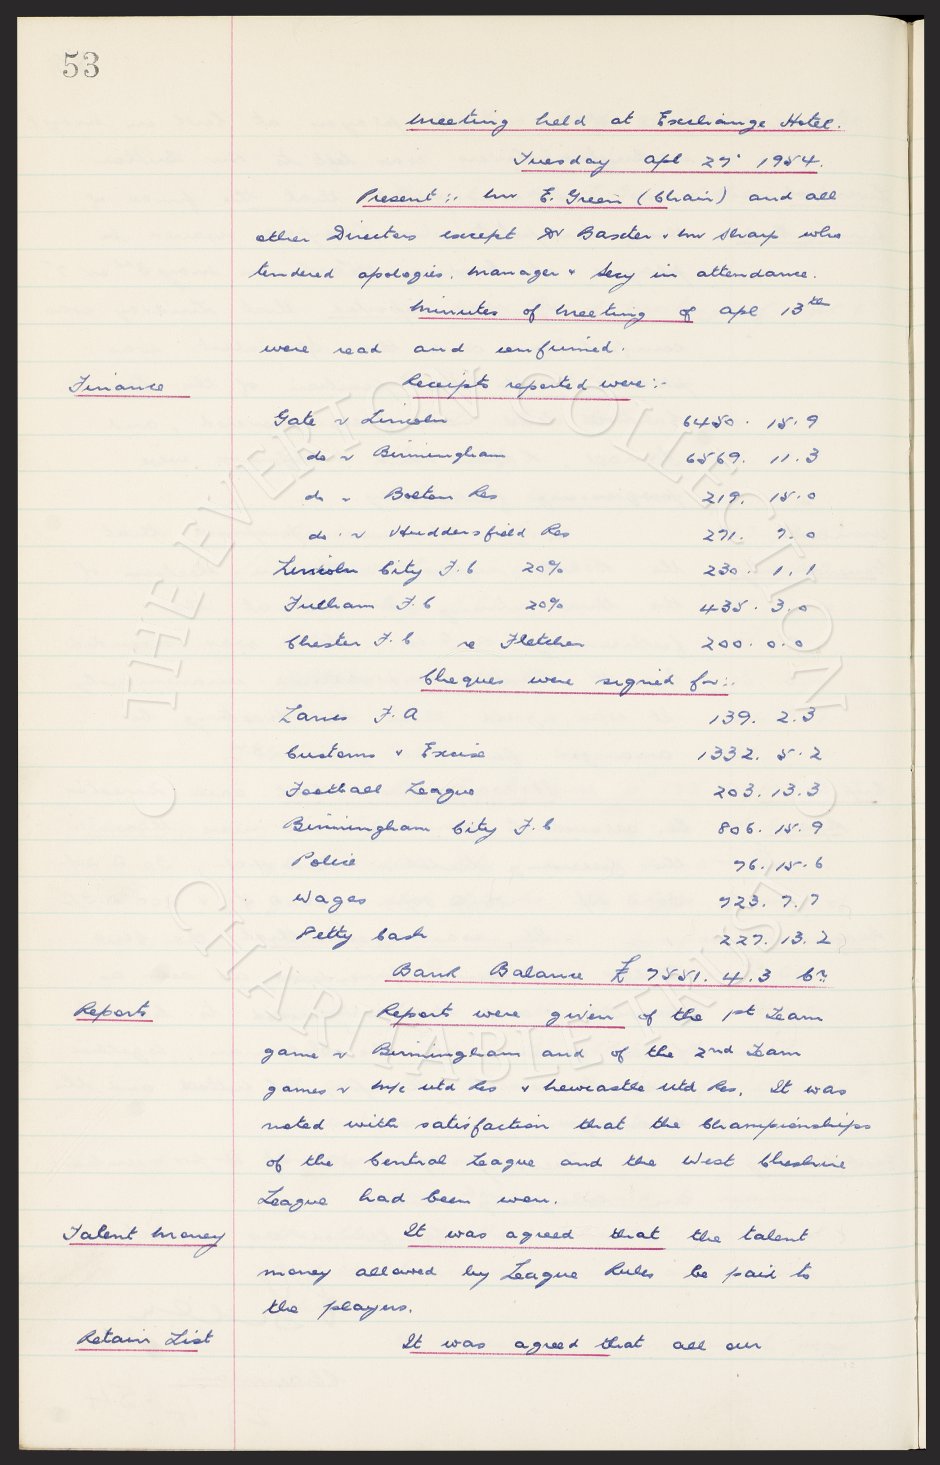 53
Meeting held at Exchange Hotel.
Tuesday Apl 27' 1954.
Present :. Mr E. Green (Chair) and all
other Directors except Dr Baxter & Mr Sharp who
tendered apologies. Manager & Secy in attendance.
Minutes of Meeting of Apl 13th
were read and confirmed.
Finance Receipts reported were:-
Gate v Lincoln 6450. 15. 9
do v Birmingham 6569. 11. 3
do v Bolton Res 219. 15. 0
do v Huddersfield Res 271. 7. 0
Lincoln City F.C 20% 230. 1. 1
Fulham F.C 20% 435. 3. 0
Chester F.C re Fletcher 200. 0. 0
Cheques were signed for:.
Lancs F.A 139. 2. 3
Customs & Excise 1332. 5. 2
Football League 203. 13. 3
Birmingham City F.C 806. 15. 9
Police 76. 15. 6
Wages 723. 7. 7
Petty Cash 227. 13. 2
Bank Balance £ 7551. 4. 3 Cr
Reports Reports were given of the 1st Team
game v Birmingham and of the 2nd Team
games v M/c Utd Res & Newcastle Utd Res. It was
noted with satisfaction that the Championships
of the Central League and the West Cheshire
League had been won.
Talent Money It was agreed that the talent
money allowed by League Rules be paid to
the players.
Retain List It was agreed that all our
© THE EVERTON COLLECTION ©
CHARITABLE TRUST